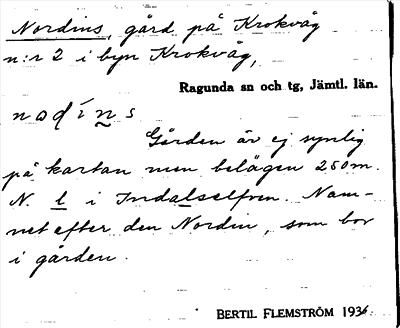 Nordins, gård på Krokvåg
n:r 2 i byn Krokvåg,
Ragunda sn och tg, Jämtl. län.
nodins
Gården är ej synlig
på kartan men belägen 250 m.
N. l i Indalselfven. Nam-
net efter den Nordin, som bor
i gården.
BERTIL FLEMSTRÖM 1936.